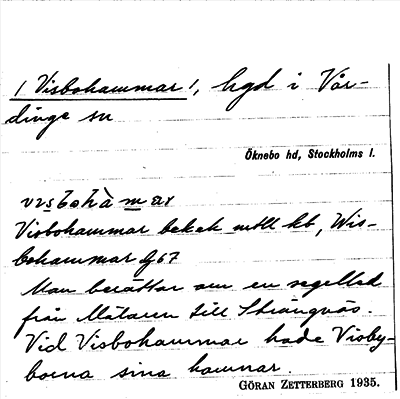 / Visbohammar /, hgd i Vår-
dinge sn
Öknebo hd, Stockholms l.
vɪsbohàmar
Visbohammar bek ek mtll kb, Wis-
bohammar G67
Man berättar om en segelled
från Mälaren till Strängnäs.
Vid Visbohammar hade Visby-
borna sina hamnar.
GÖRAN ZETTERBERG 1935.